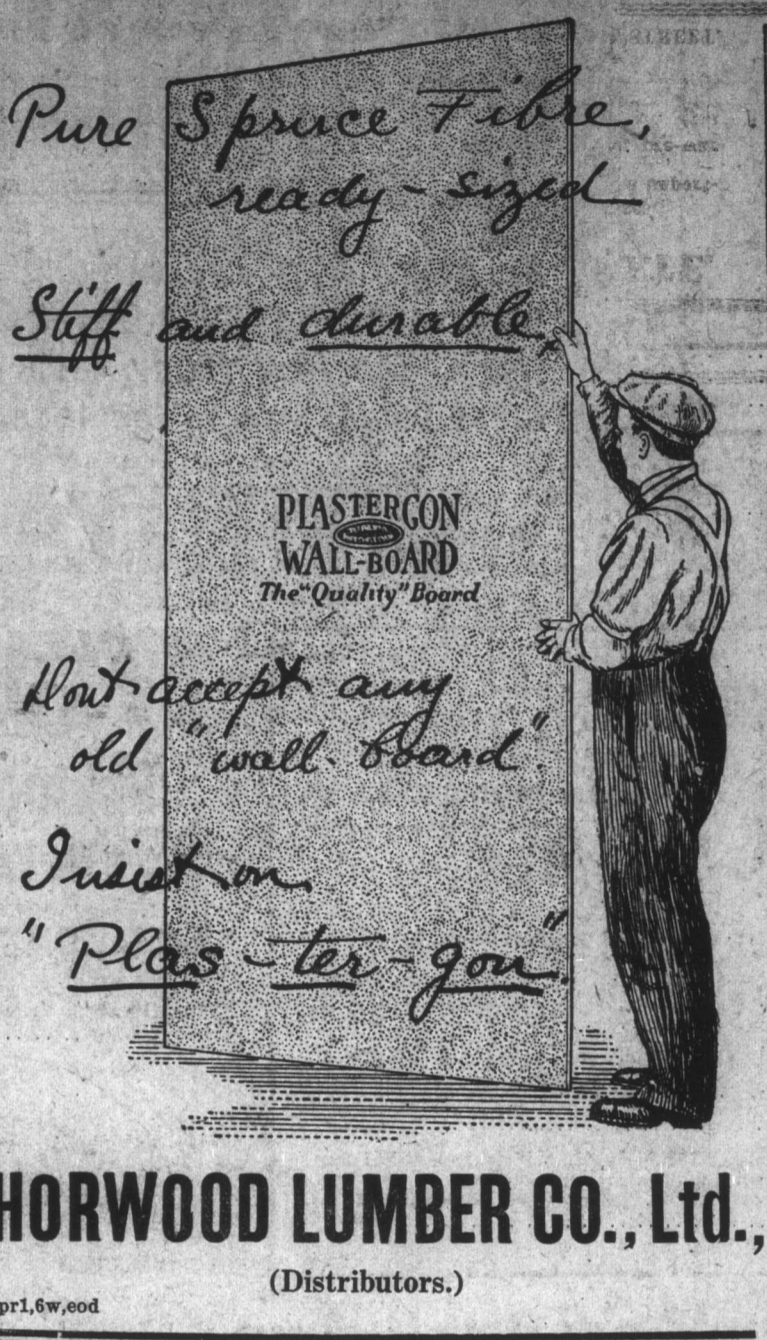 Pure Spruce Fibre,
ready-sized
Stiff and durable,
PLASTERGON
WALL-BOARD
The "Quality" Board
Dont accept any
old "wall-board".
Insist on
"Plas-ter-gon".
HORWOOD LUMBER CO., Ltd.,
(Distributors.)
pr1,6w,eod